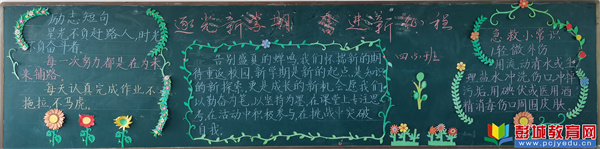 逐光新学期 奋进新征程
励志短句
星光不负赶路人,时光
不负奋斗者。
每一次努力都是在为未
来铺路。
每天认真完成作业,不
拖拉,不马虎。
四(5)班
告别盛夏的蝉鸣,我们怀揣新的期
待重返校园,新学期是新的起点,是知识
的新探索,更是成长的新机会,愿我们
以勤奋为笔,以坚持为墨,在课堂上专注思
考,在活动中积极参与,在挑战中突破
自我。
急救小常识
轻微外伤
用流动清水或生
理盐水冲洗伤口,冲掉
污垢,用碘伏或医用酒
精消毒伤口周围皮肤
彭城教育网
www.pcjyedu.cn